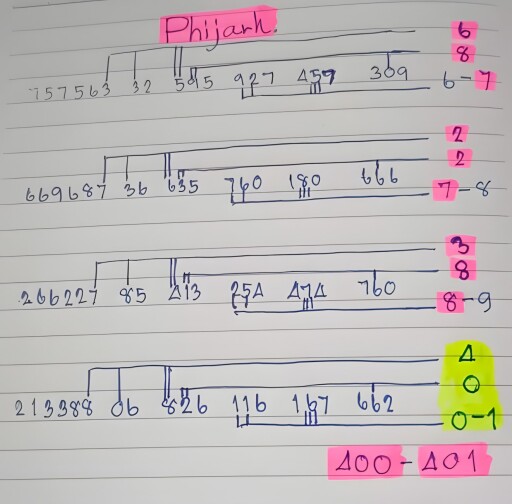 Phijarh.
6
8
757563 32 595 927 457 309 6-7
2
2
669687 36 635 760 180 666 7-8
3
8
266227 85 413 254 474 760 8-9
4
0
213388 06 826 116 167 662 0-1
400-401